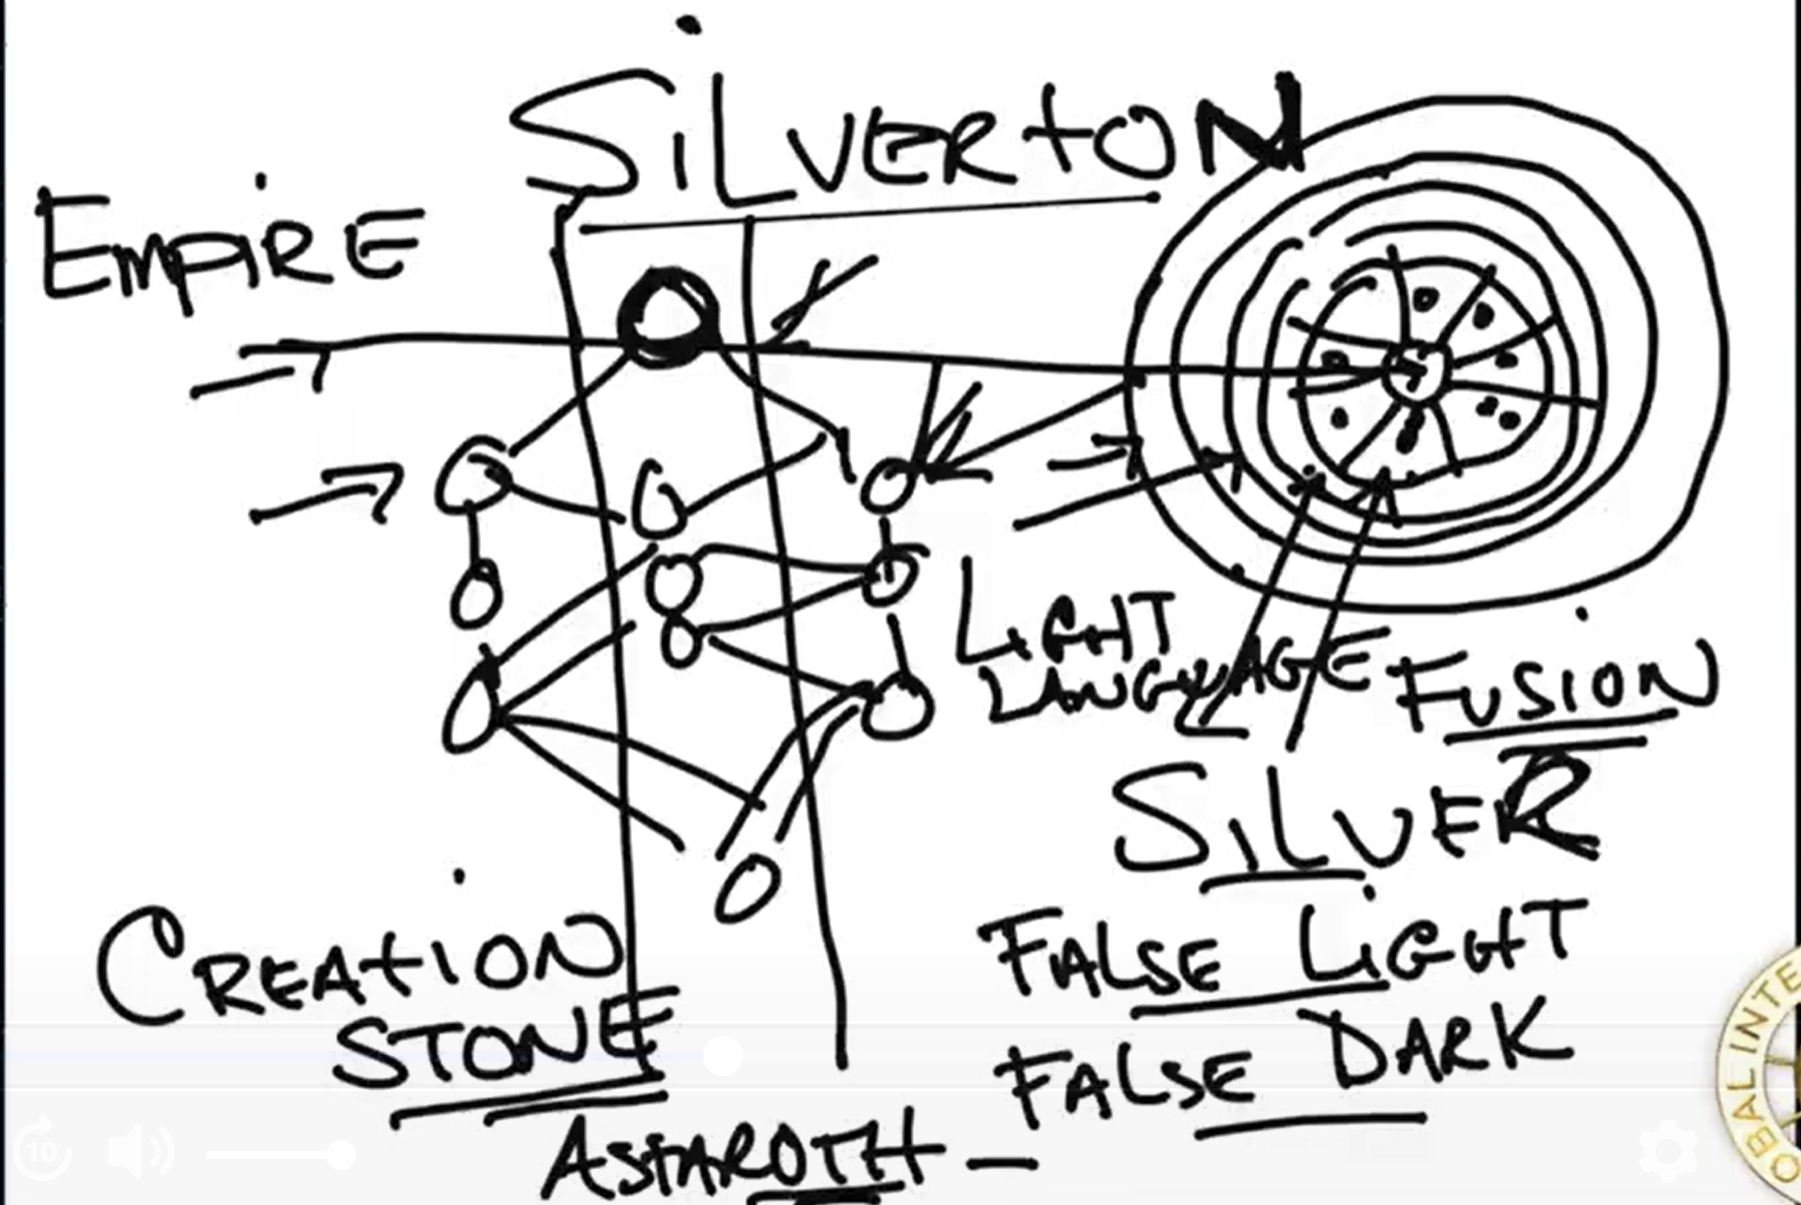 SiLVERtON
EMPiRE
LiGHT
LANGUAGE FUSiON
SiLVER
CREAtiON
STONE
FALSE LiGHT
FALSE DARK
ASTAROTH -
OBAL INTE
10